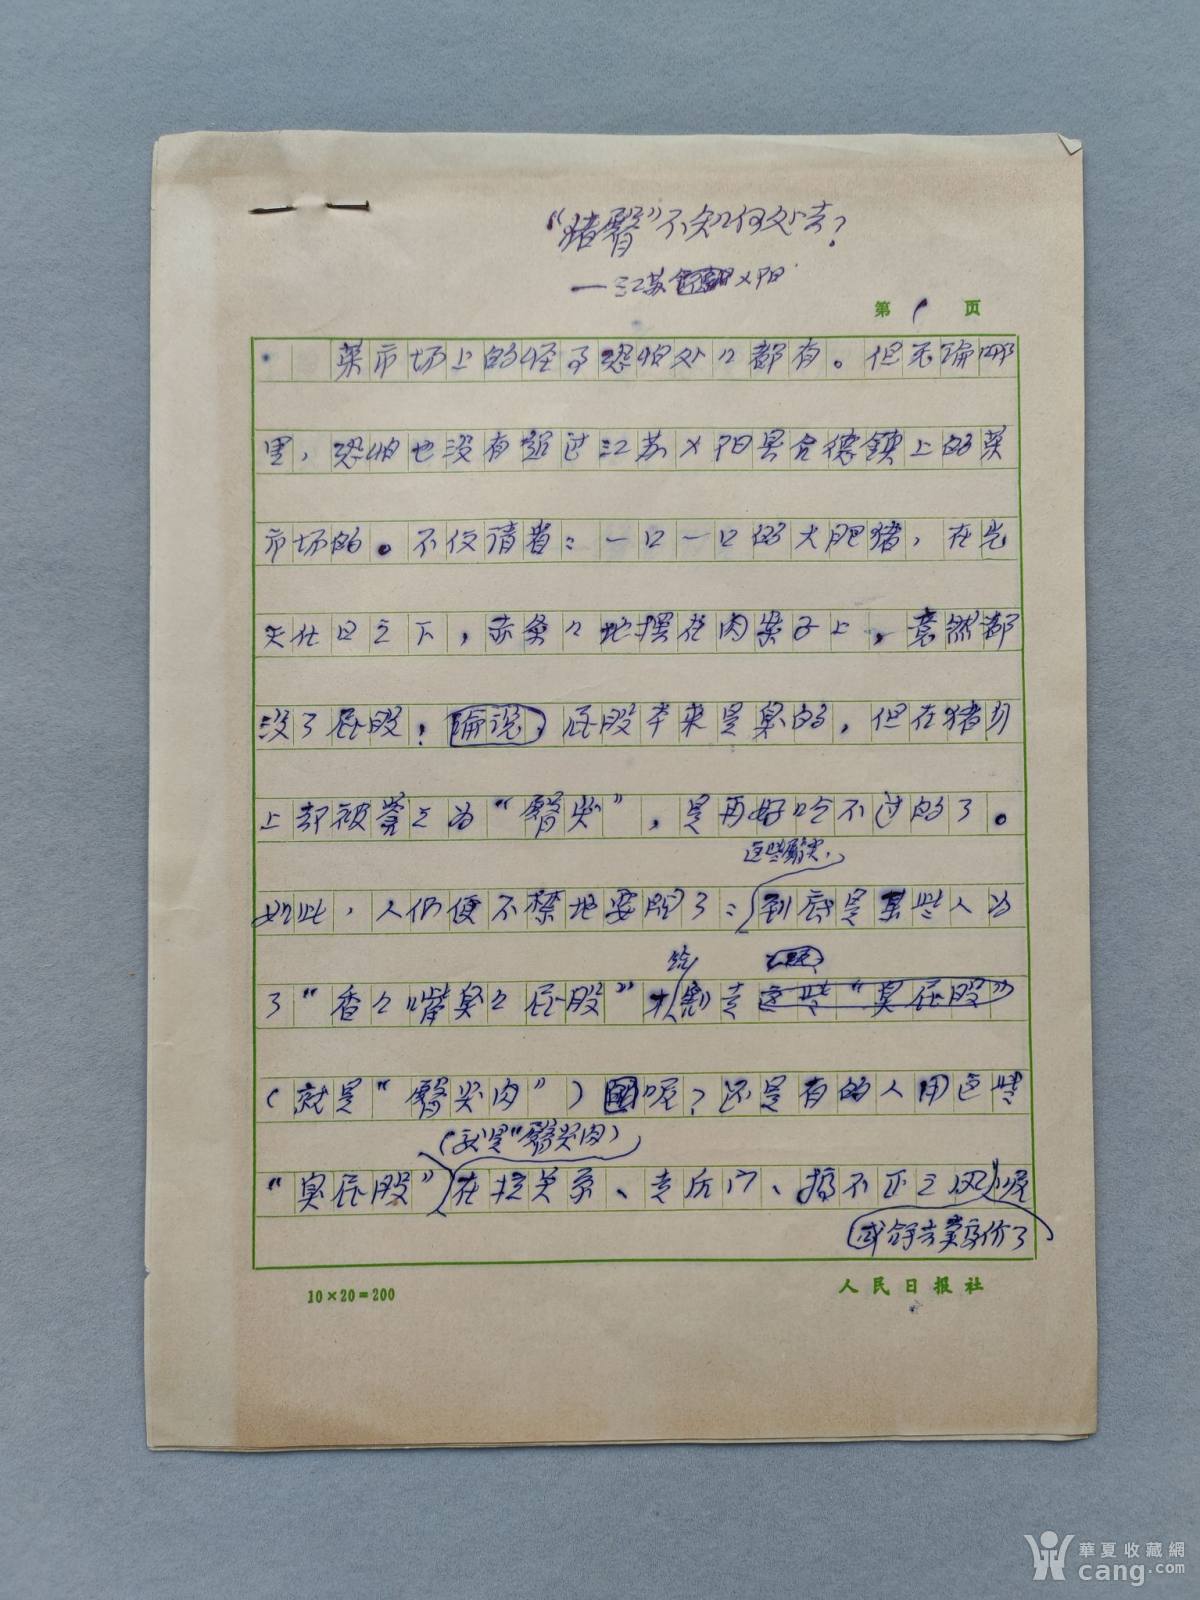 “猪臀”不知何处去？
——江苏 乂阳
第1页
菜市场上的怪事恐怕处々都有。但无论哪
里，恐怕也没有超过江苏乂阳县合德镇上的菜
市场的。不仅请看：一口一口的大肥猪，在光
天化日之下，赤条々地摆在肉案子上，竟然都
没了屁股！论说，屁股本来是臭的，但在猪身
上却被誉之为“臀尖”，是再好吃不过的了。
这些臀尖，
如此，人们便不禁地要问了：到底是某些人为
了“香々嘴臭々屁股”抢割去这些“臭屁股”
（就是“臀尖肉”）呢？还是有的人用这些
（就是“臀尖肉）
“臭屁股”在拉关系、走后门、搞不正之风呢
或给予卖高价了
10×20=200
人民日报社
華夏收藏網
cang.com